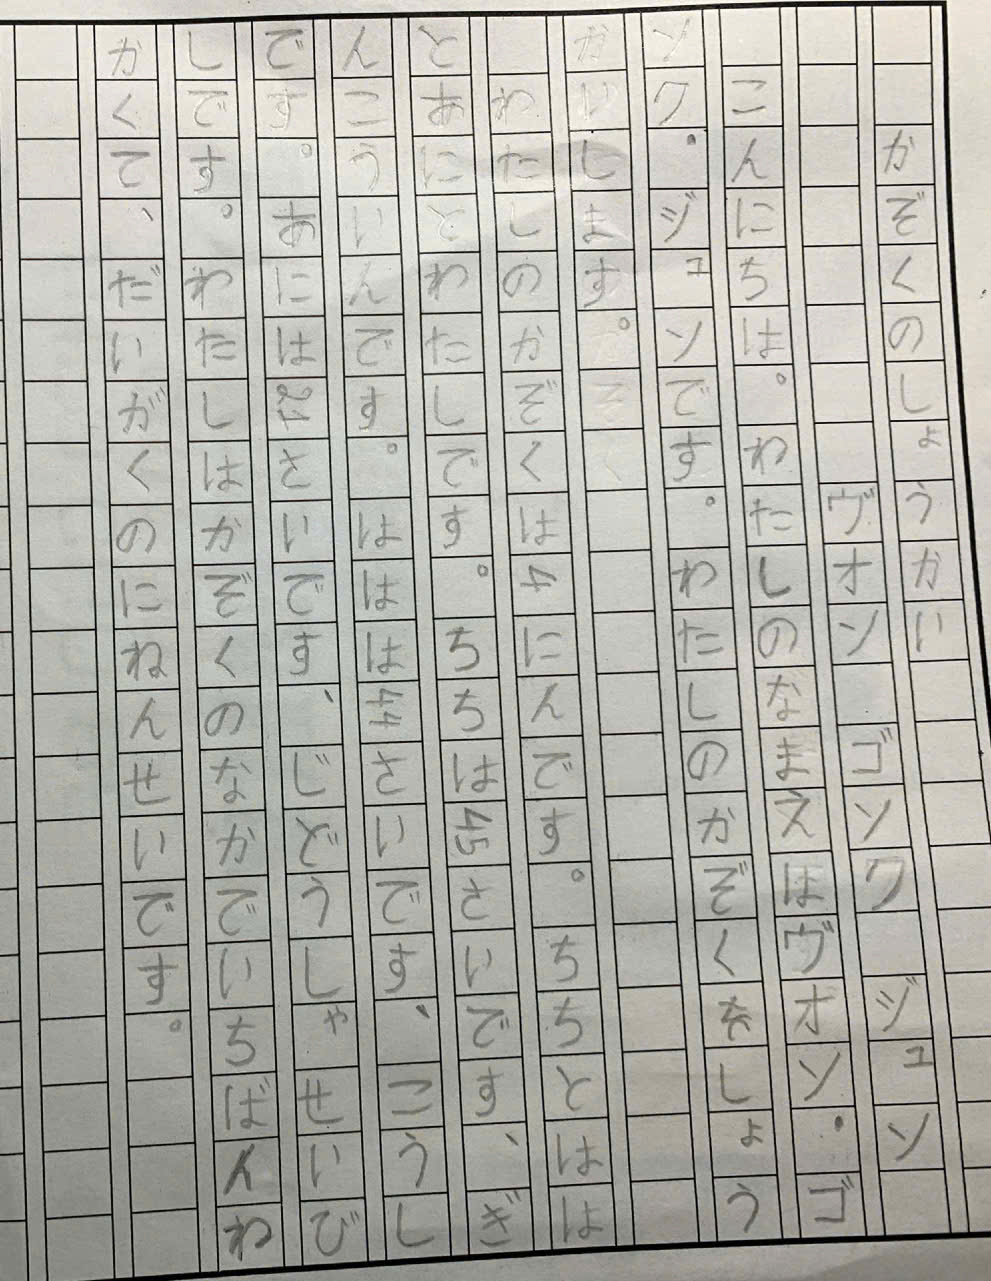 かぞくのしょうかい
ヴオン ゴンク ジュン
こんにちは。わたしのなまえはヴオン・ゴ
ンク・ジュンです。わたしのかぞくをしょう
かいします。
わたしのかぞくは4にんです。ちちとはは
とあにとわたしです。ちちは45さいです、ぎ
んこういんです。ははは44さいです、こうし
です。あには21さいです、じどうしゃせいび
しです。わたしはかぞくのなかでいちばんわ
かくて、だいがくのにねんせいです。